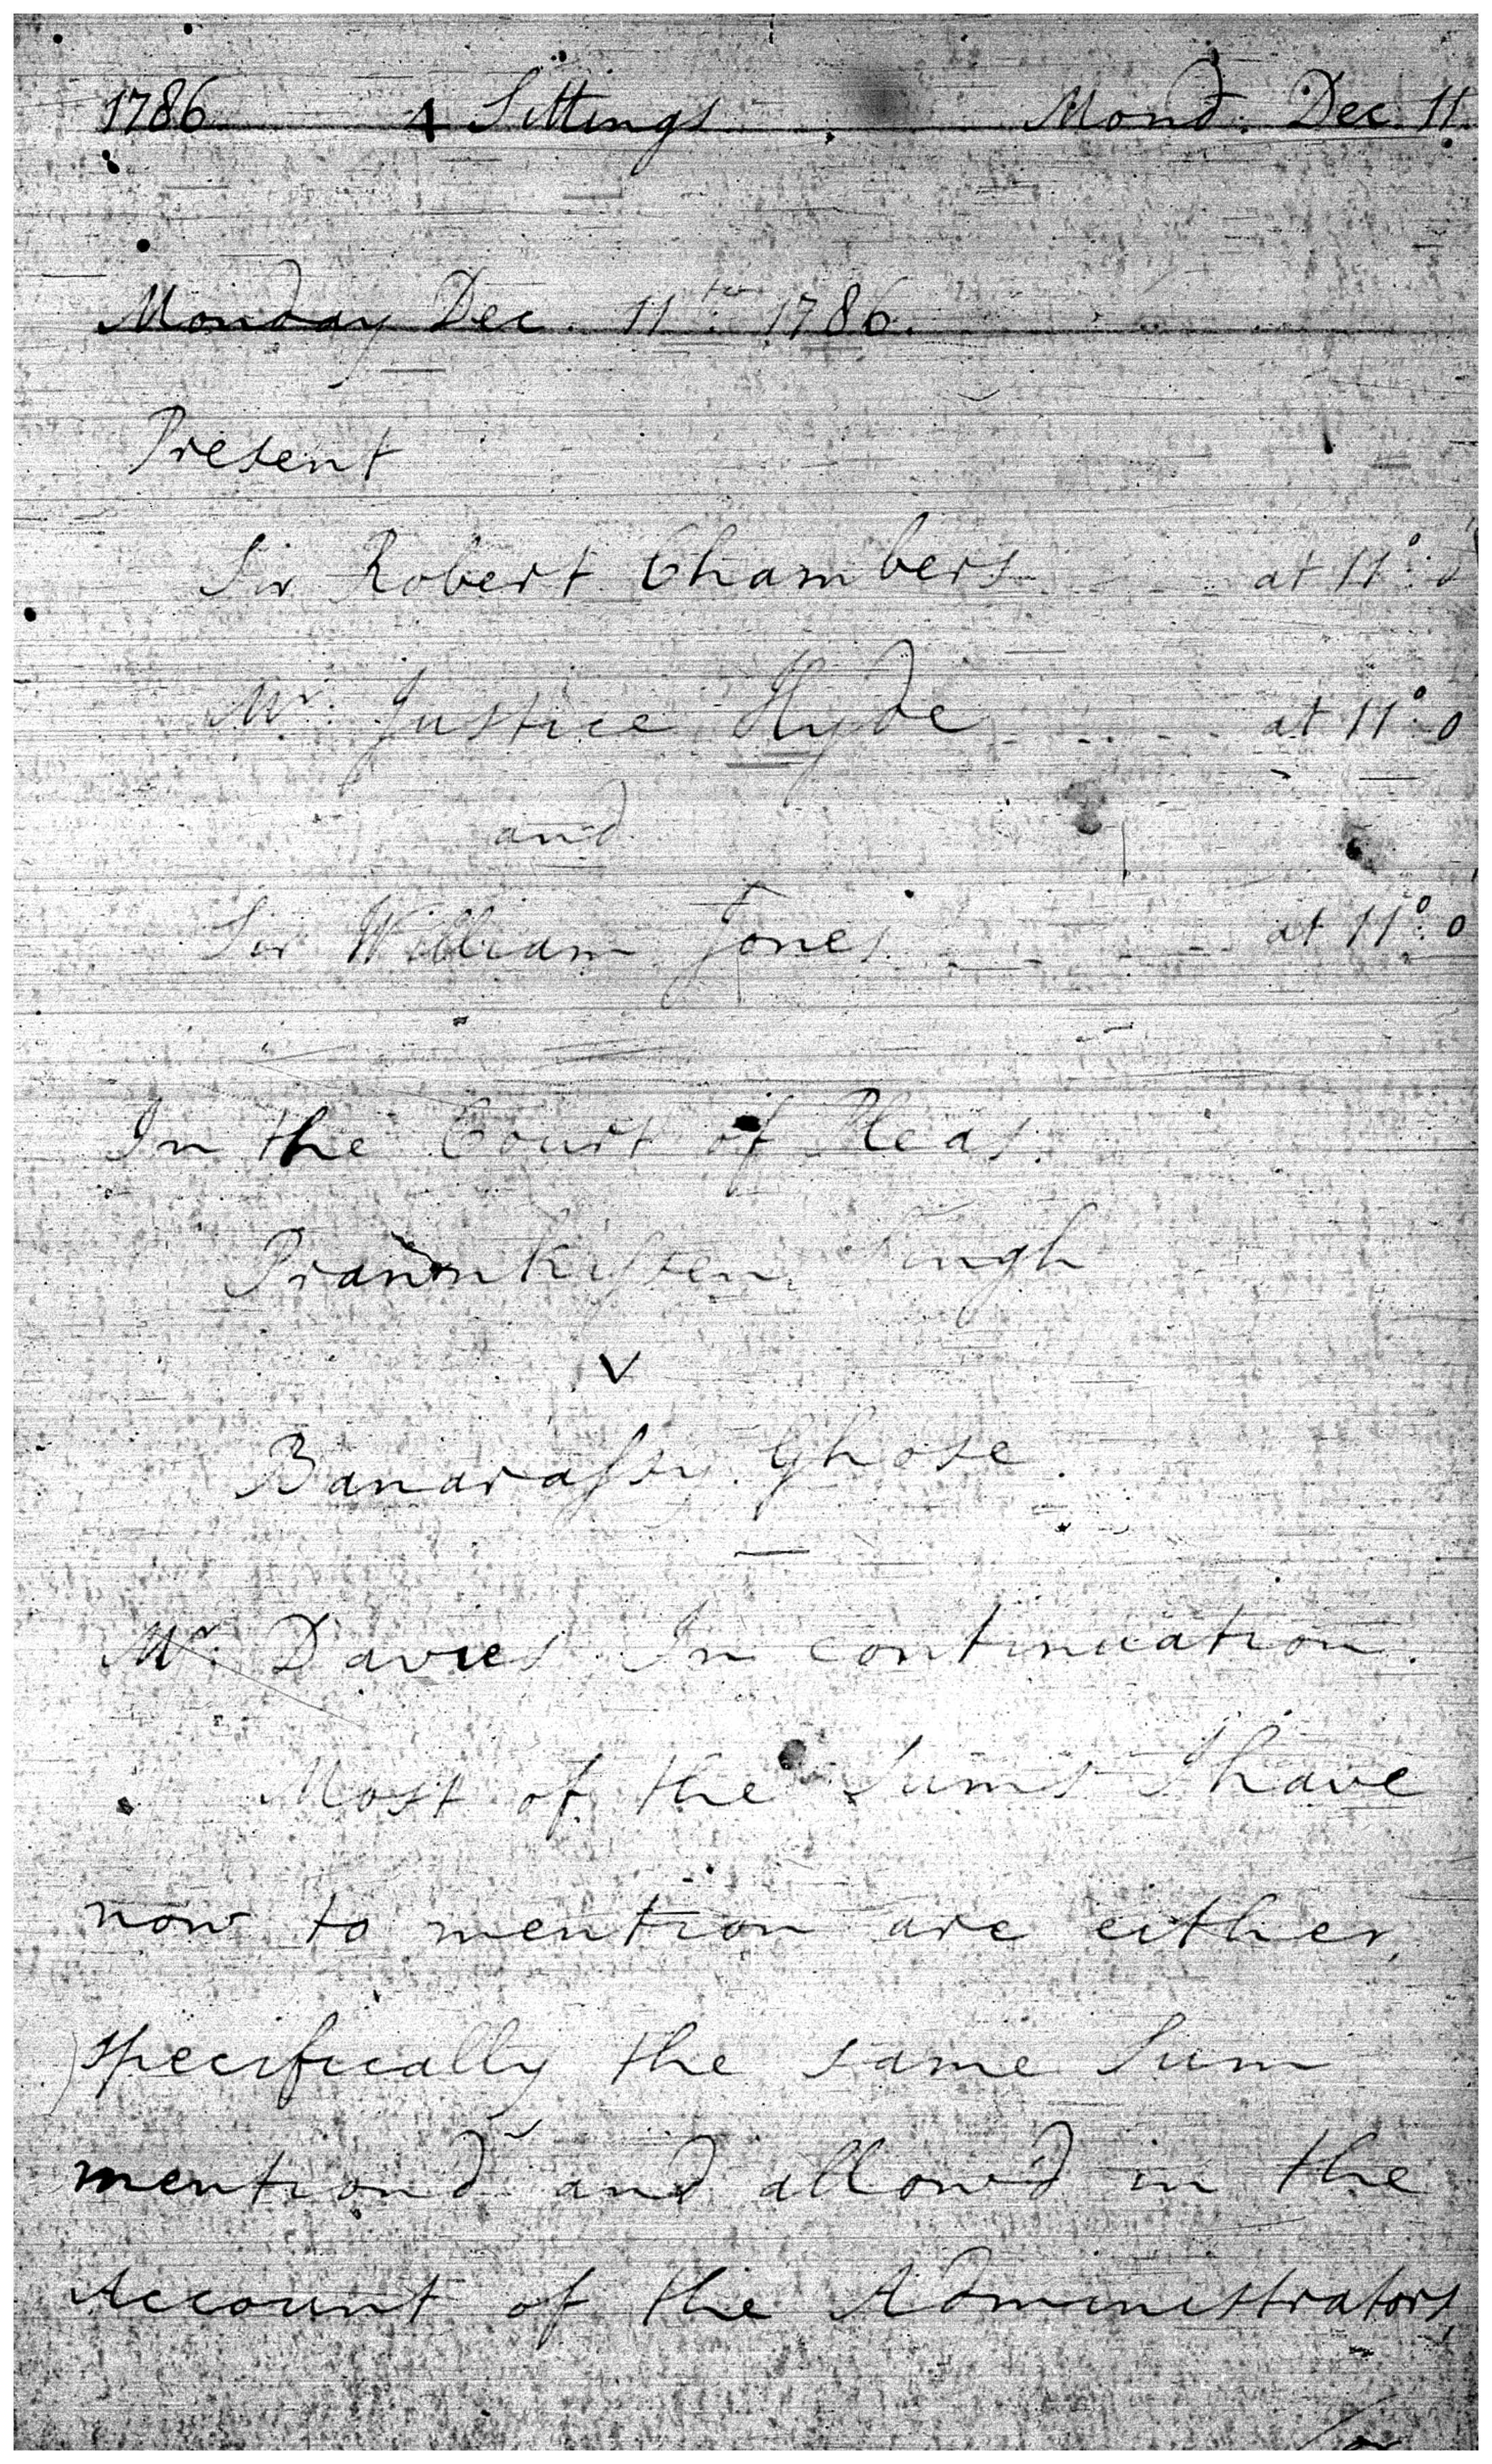 1786 4 Sittings. Mond. Dec. 11
Monday Dec. 11th 1786.
Present
Sir Robert Chambers at 11°. 0
Mr. Justice Hyde at 11°. 0
and
Sir William Jones at 11°. 0
In the Court of Pleas.
Singh
v
Banarassy Ghose.
Mr. Davies In continuation.
Most of the Sums I have
now to mention are either,
specifically the same Sum
mention'd and allow'd in the
Account of the Administrators,